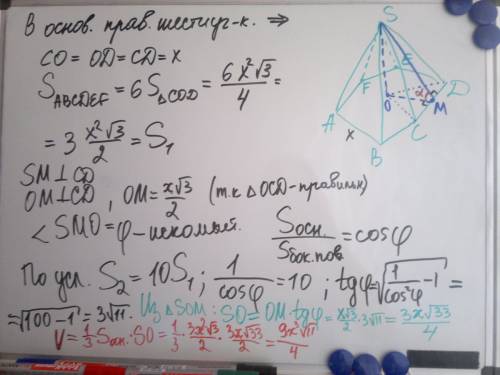 В основ. прав. шестиуг-к. ⇒
CO = OD = CD = x
S_ABCDEF = 6S_△COD = 6x²√3/4 =
= 3 x²√3/2 = S₁
SM⊥CD
OM⊥CD, OM = x√3/2 (т.к △OCD-правильн)
< SMO = φ - искомый. Sосн./Sбок.пов. = cosφ
По усл. S₂ = 10S₁; 1/cosφ = 10; tgφ = √(1/cos²φ - 1) =
= √(100-1) = 3√11. Из △SOM: SO = OM·tgφ = x√3/2 · 3√11 = 3x√33/4
V = 1/3 Sосн·SO = 1/3 · 3x²√3/2 · 3x√33/2 = 9x³√11/4
S
E
F
D
O
2
M
A
x
C
B